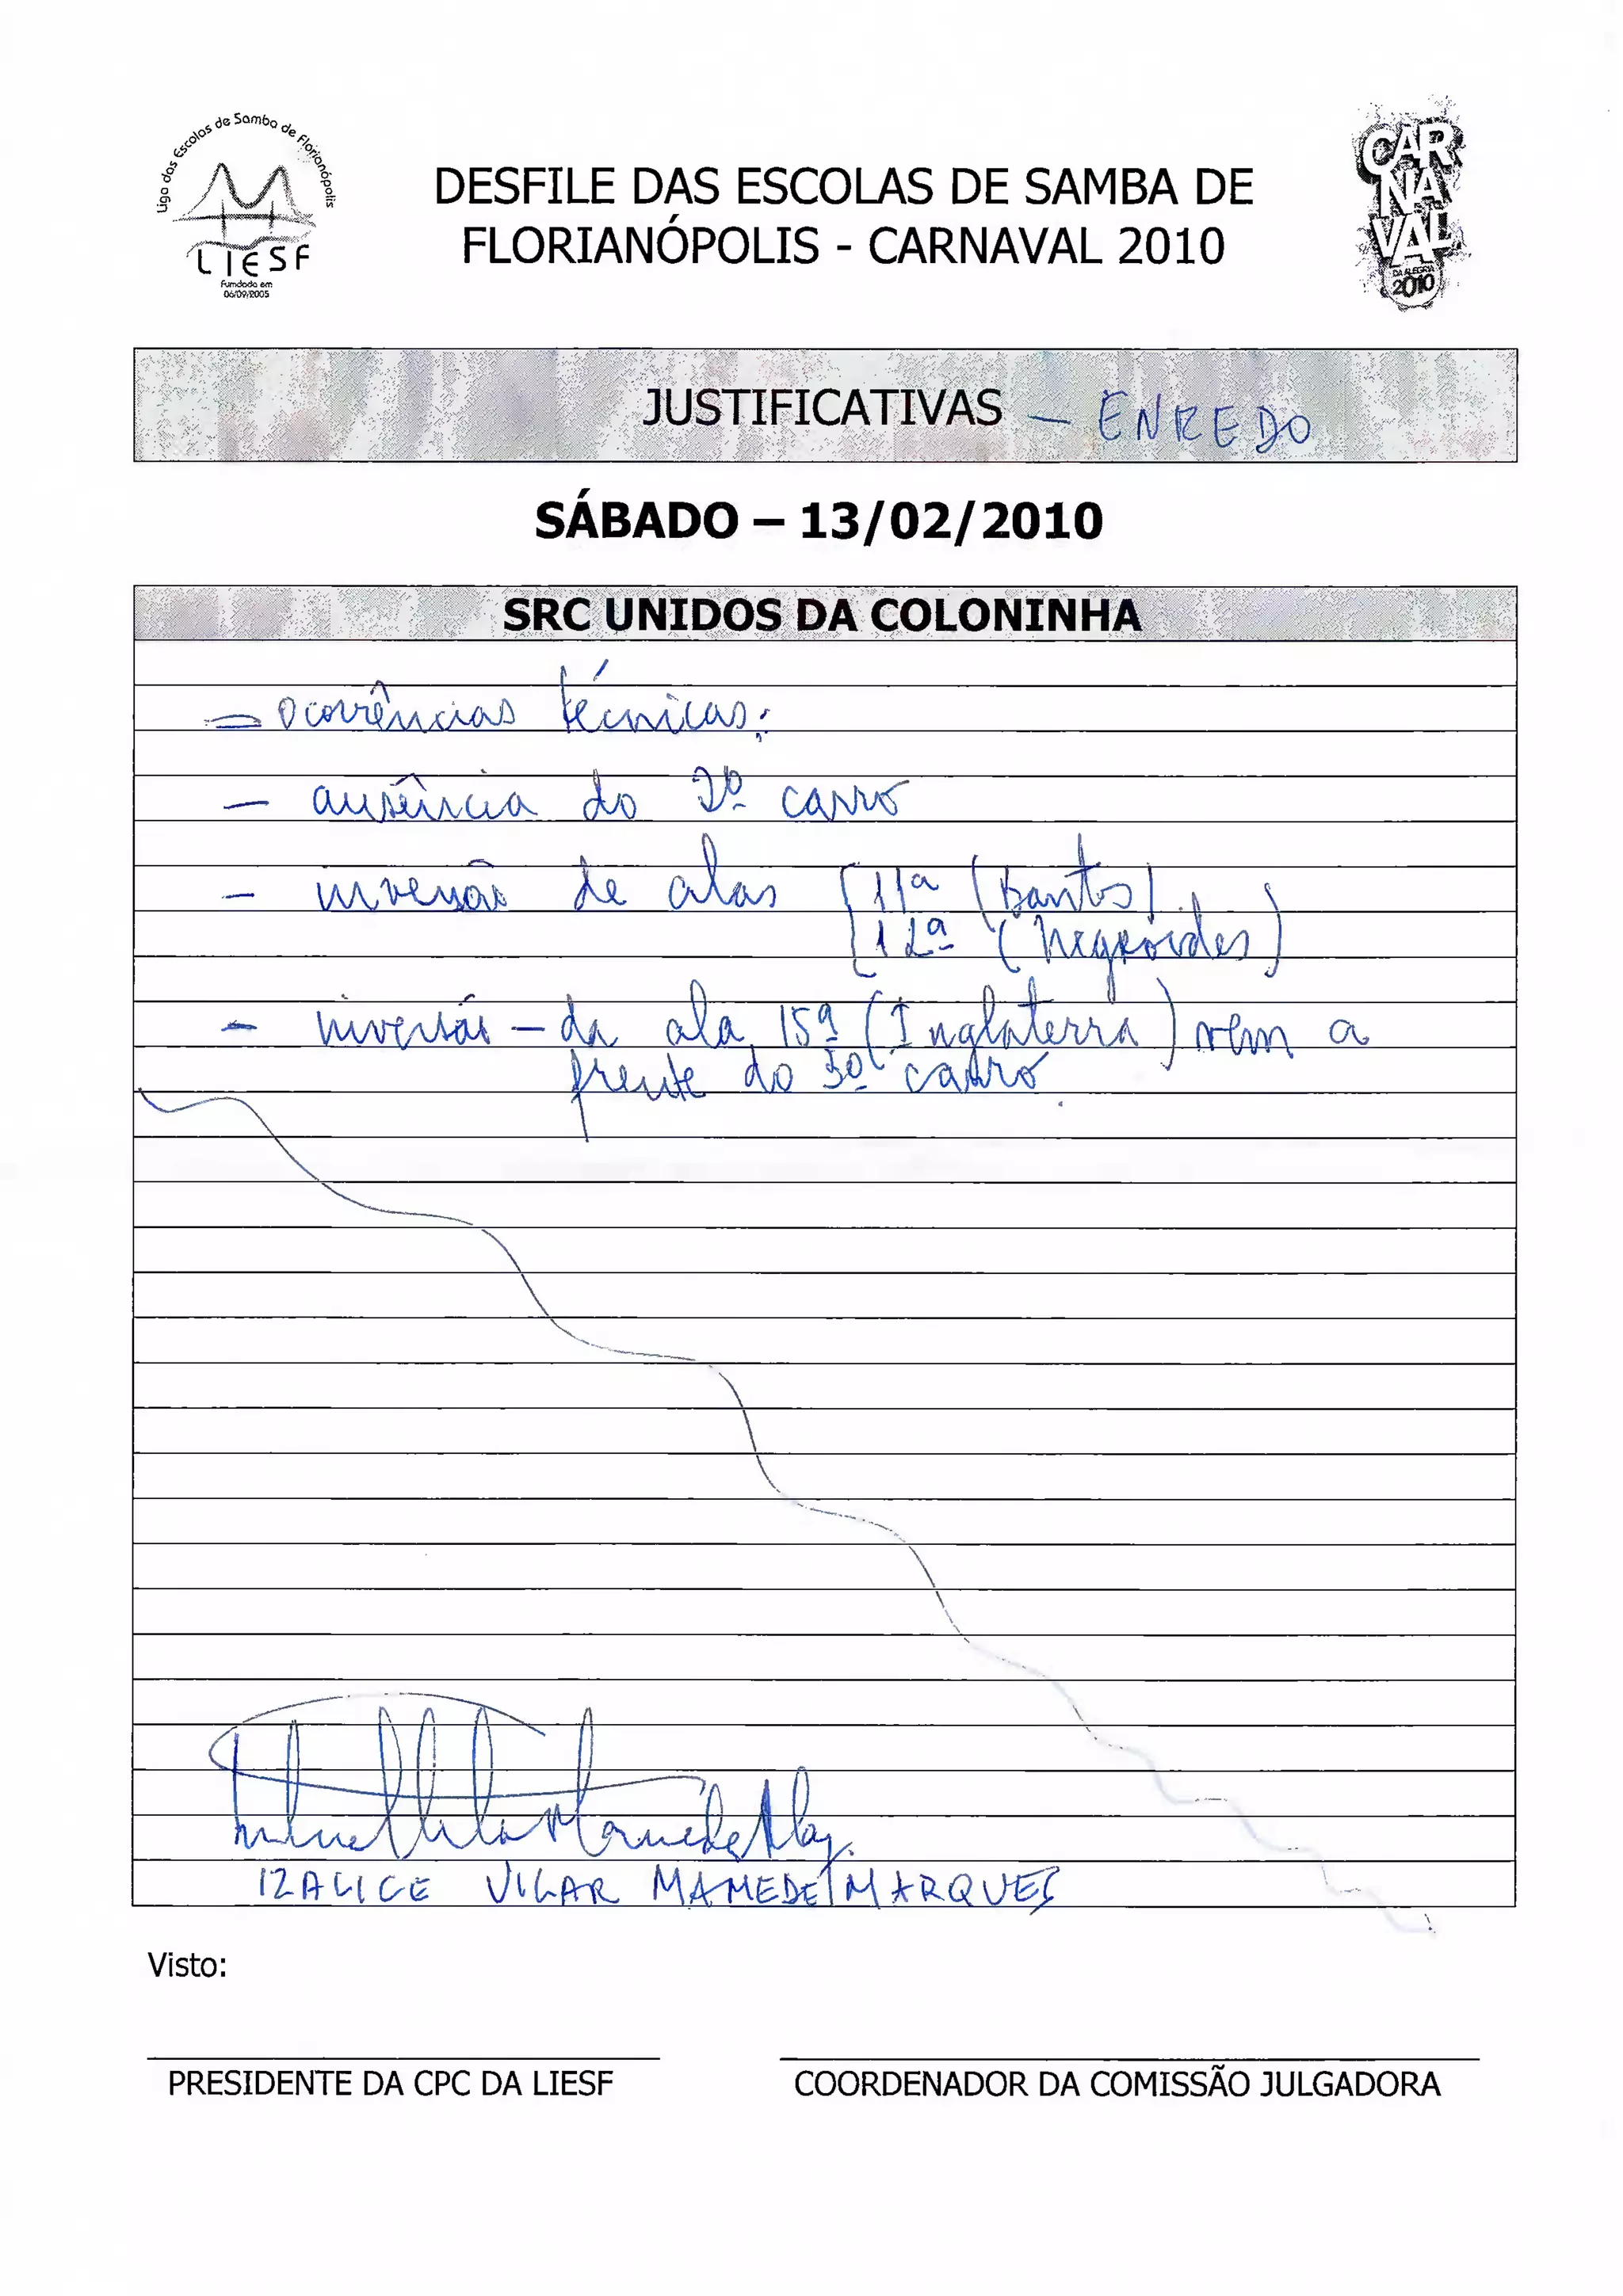 Liga das Escolas de Samba de Florianópolis
LIESF
Fundada em
06/09/2005
DESFILE DAS ESCOLAS DE SAMBA DE
FLORIANÓPOLIS - CARNAVAL 2010
CAR
NA
VAL
DA ALEGRIA
2010
JUSTIFICATIVAS — ENREDO
SÁBADO – 13/02/2010
SRC UNIDOS DA COLONINHA
= Ocorrências técnicas:
— ausência do 2º carro
— inversão de alas [11ª (bantos)
[12ª (negróides)
— inversão — da ala 15ª (Inglaterra) vem a
frente do 3º carro.
IZALICE VILAR MAMEDE MARQUES
Visto:
PRESIDENTE DA CPC DA LIESF
COORDENADOR DA COMISSÃO JULGADORA